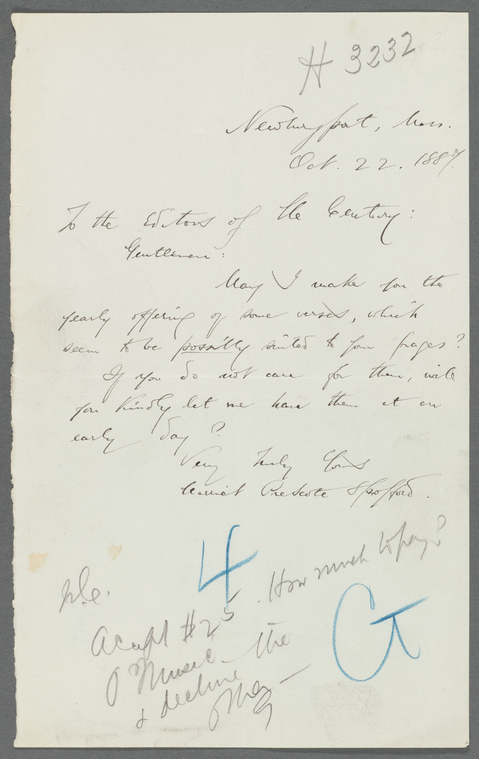 H 3232
Newburyport, Mass.
Oct. 22. 1887.
To the Editors of the Century:
Gentlemen:
May I make you the
yearly offering of some verses, which
seem to be possibly suited to your pages?
If you do not care for them, will
you kindly let me have them at an
early day?
Very truly Yours
Harriet Prescott Spofford.
4
How much to pay?
Accept $25
Music
& decline the
G